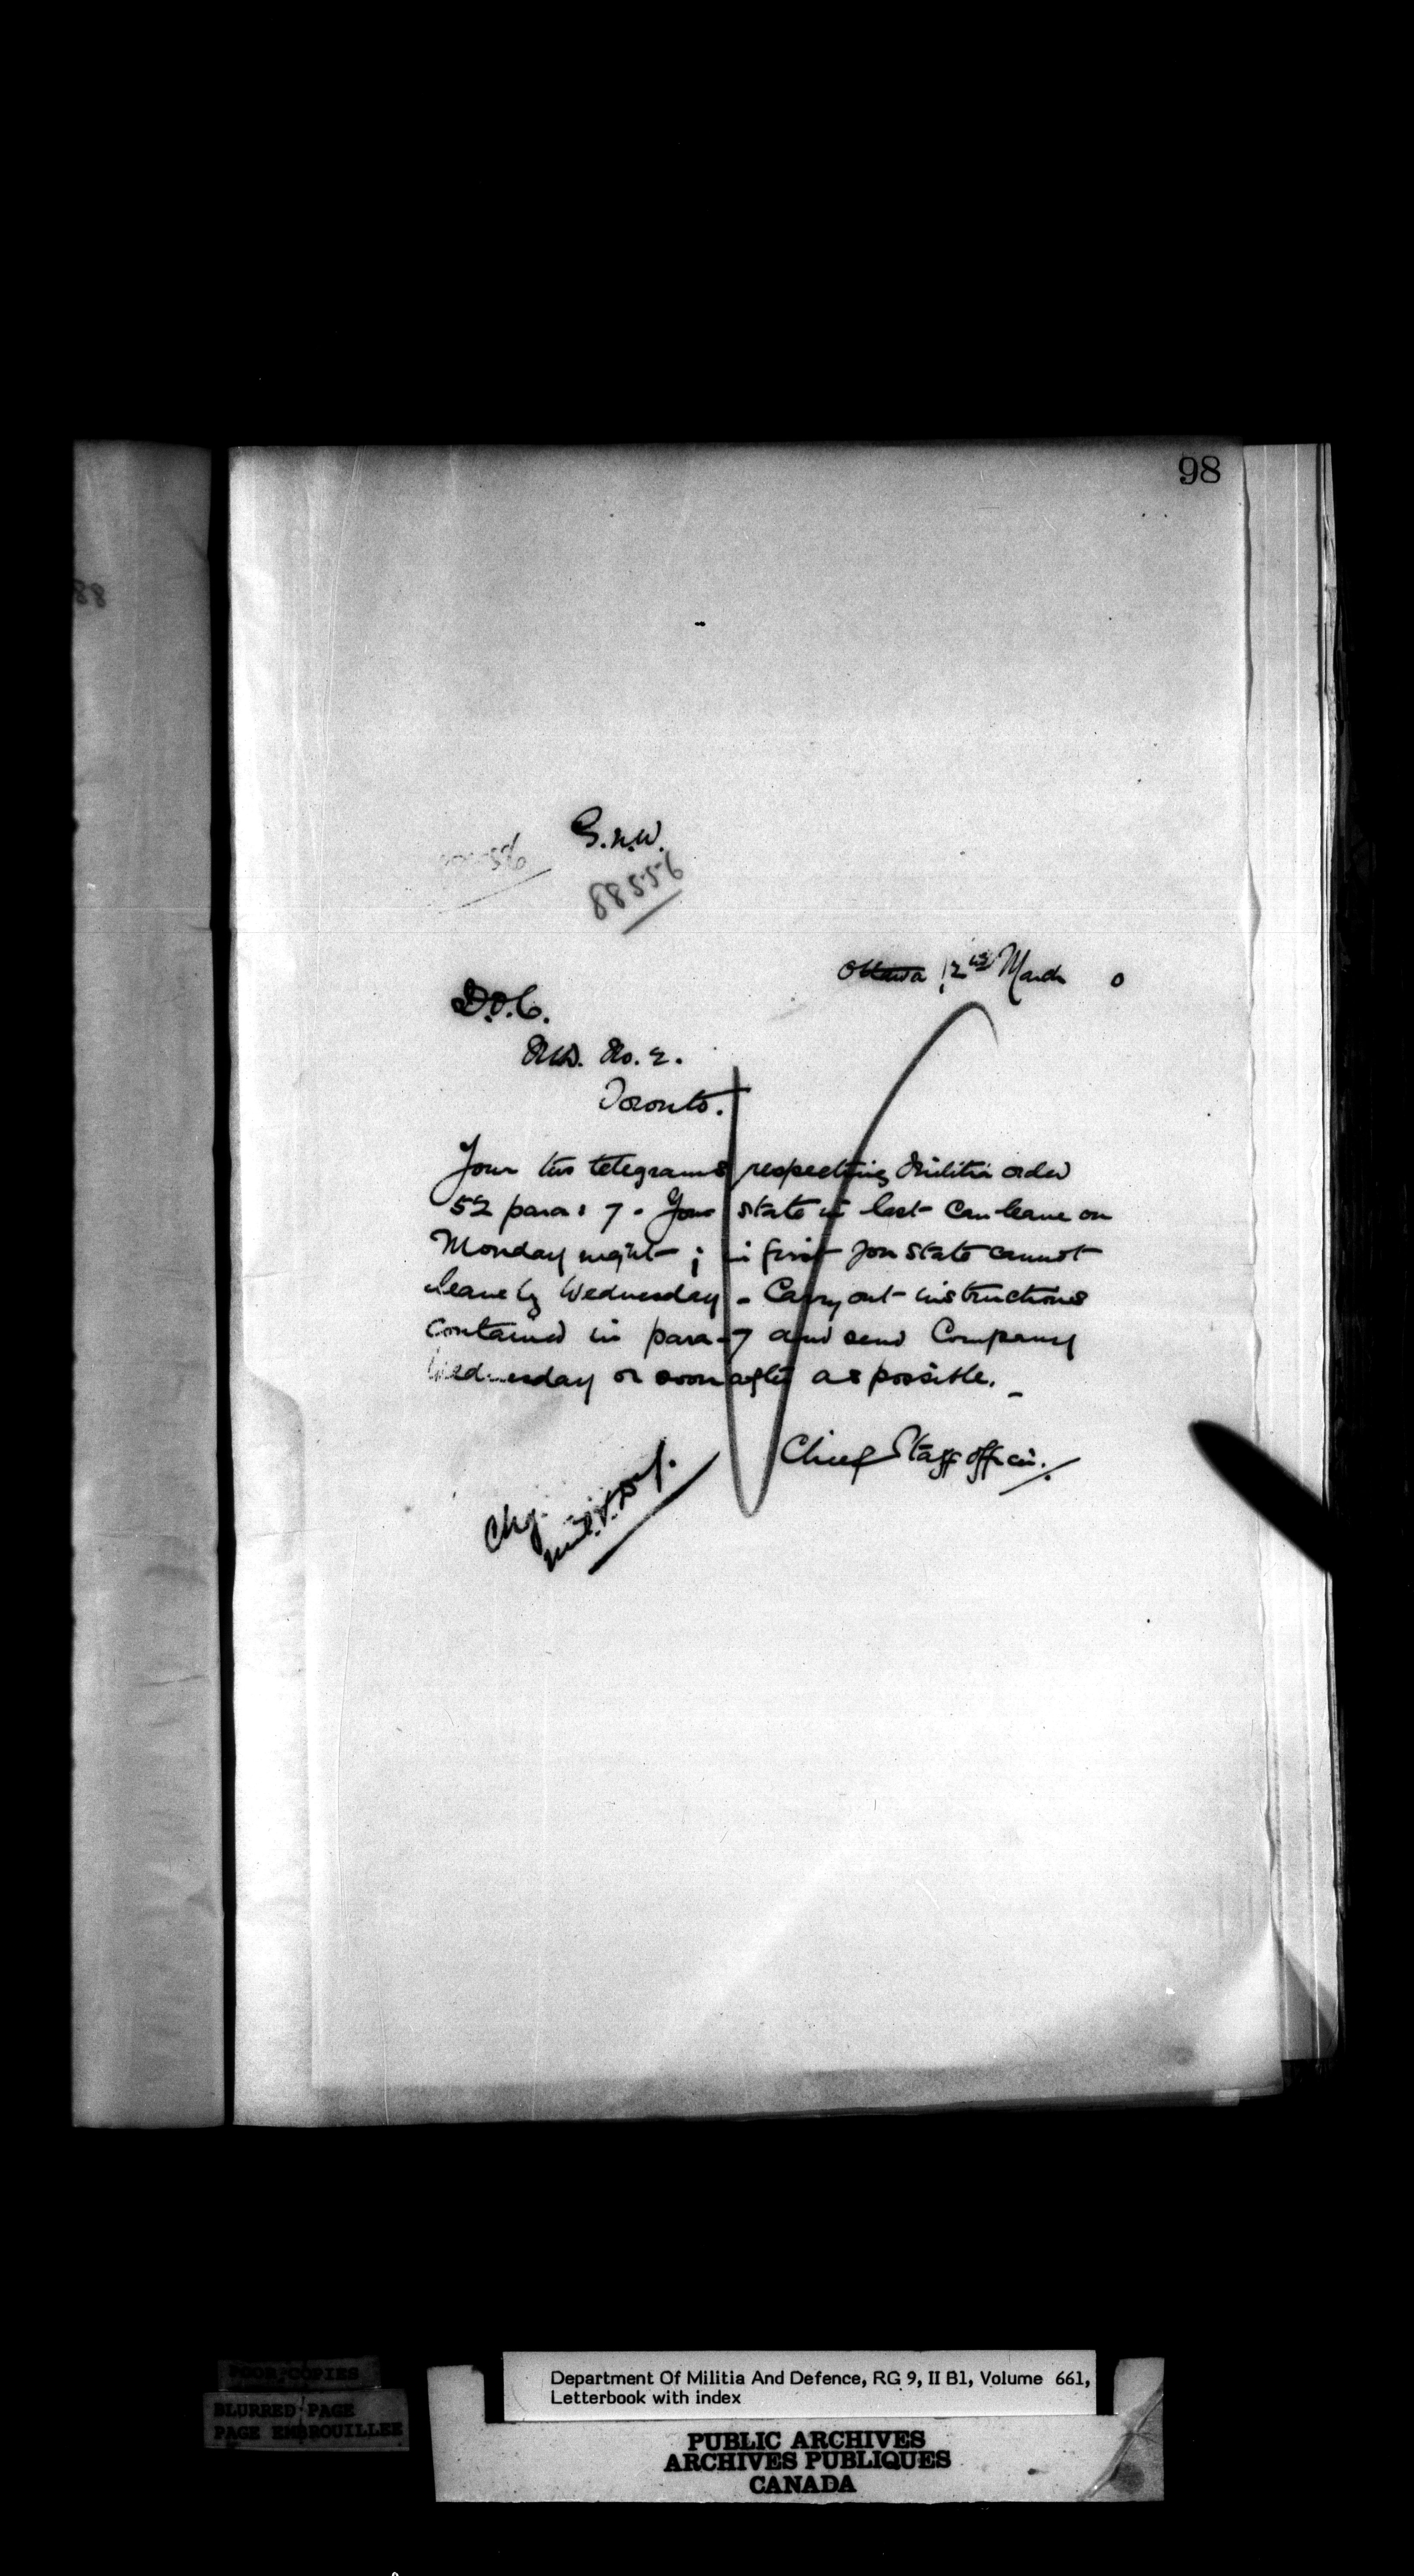 98
88
G.N.W.
88556
56
Ottawa 12th March 0
D.O.C.
M.D. No. 2.
Toronto.
Your two telegrams respecting Militia order
52 para: 7. You state in last can leave on
Monday night; in first you state cannot
leave by Wednesday - Carry out instructions
contained in para-7 and send Company
Wednesday or soon after as possible.
Chief Staff Officer.
Chg.
Mil. & Def.
POOR COPIES
BLURRED PAGE
PAGE EMBROUILLEE
Department Of Militia And Defence, RG 9, II B1, Volume 661,
Letterbook with index
PUBLIC ARCHIVES
ARCHIVES PUBLIQUES
CANADA